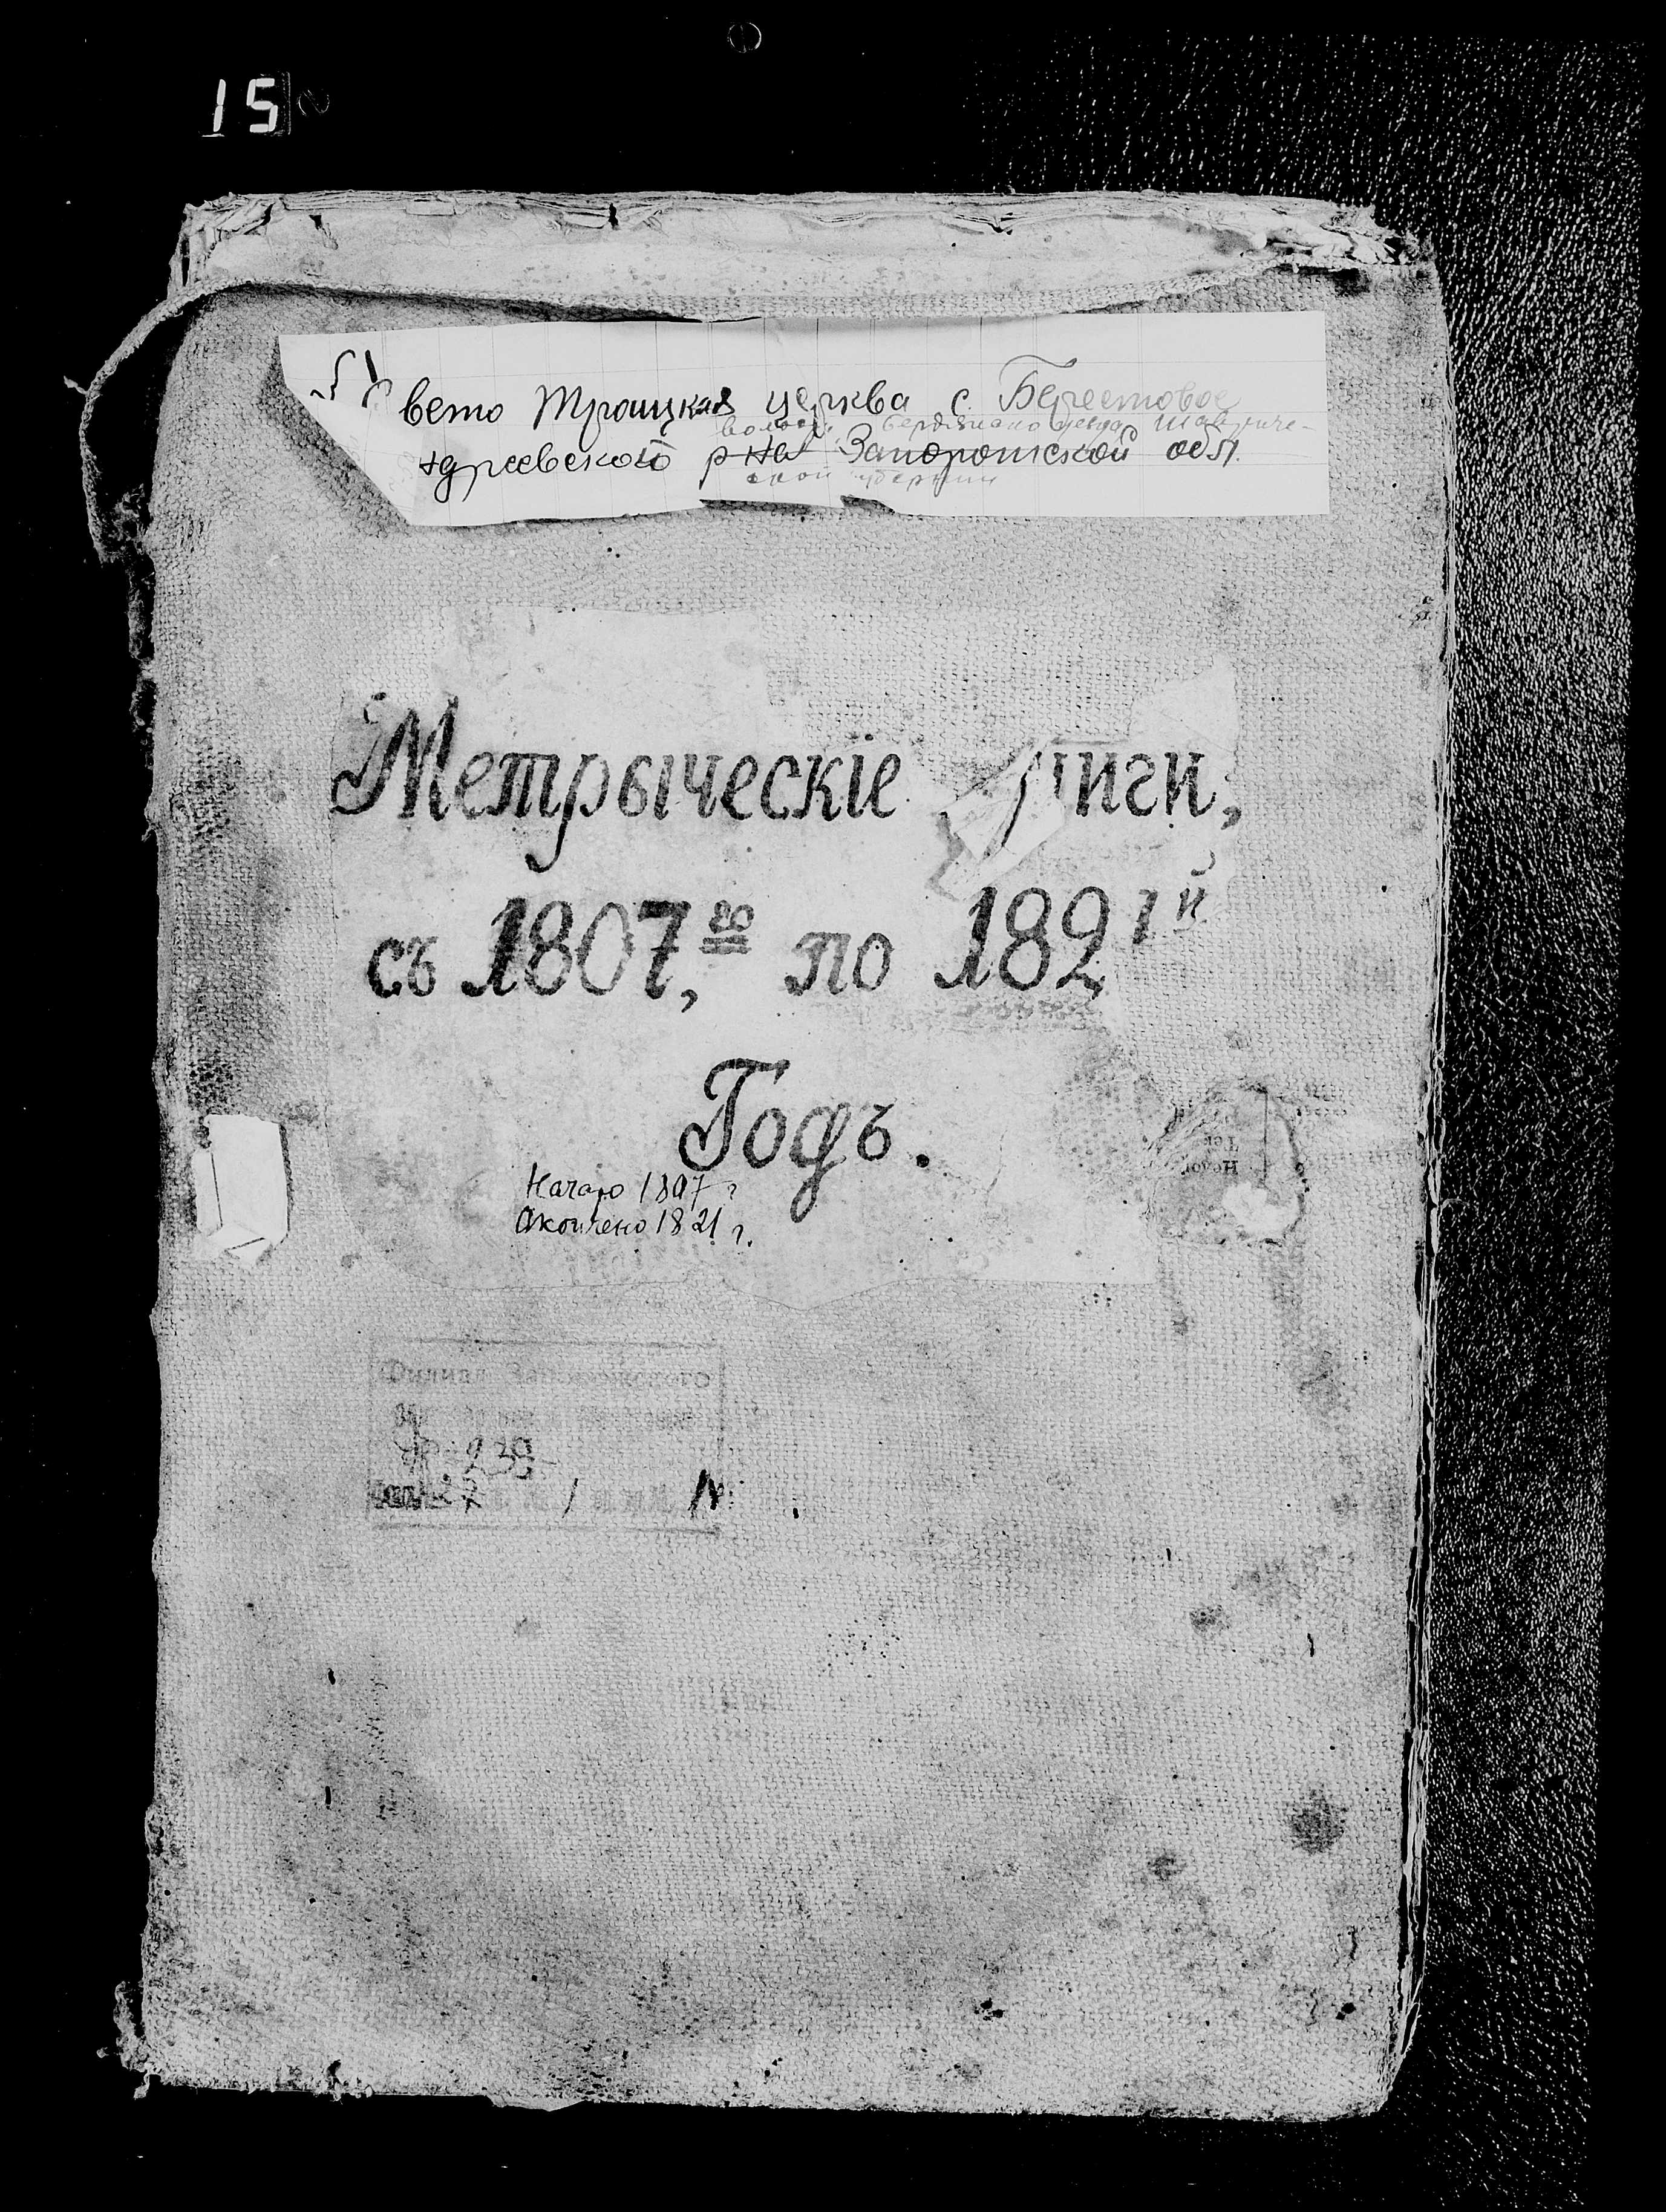 15
Свето Троицкая церква с. Берестовое
волост. Бердянского уезда Тавриче-
ндреевского р-на Запорожской обл.
ской губернии
Метрыческіе ниги,
съ 1807,го по 1821й
Годъ.
Начато 1807 г
Окончено 1821 г.
Филиал Запорожского
Ф-239